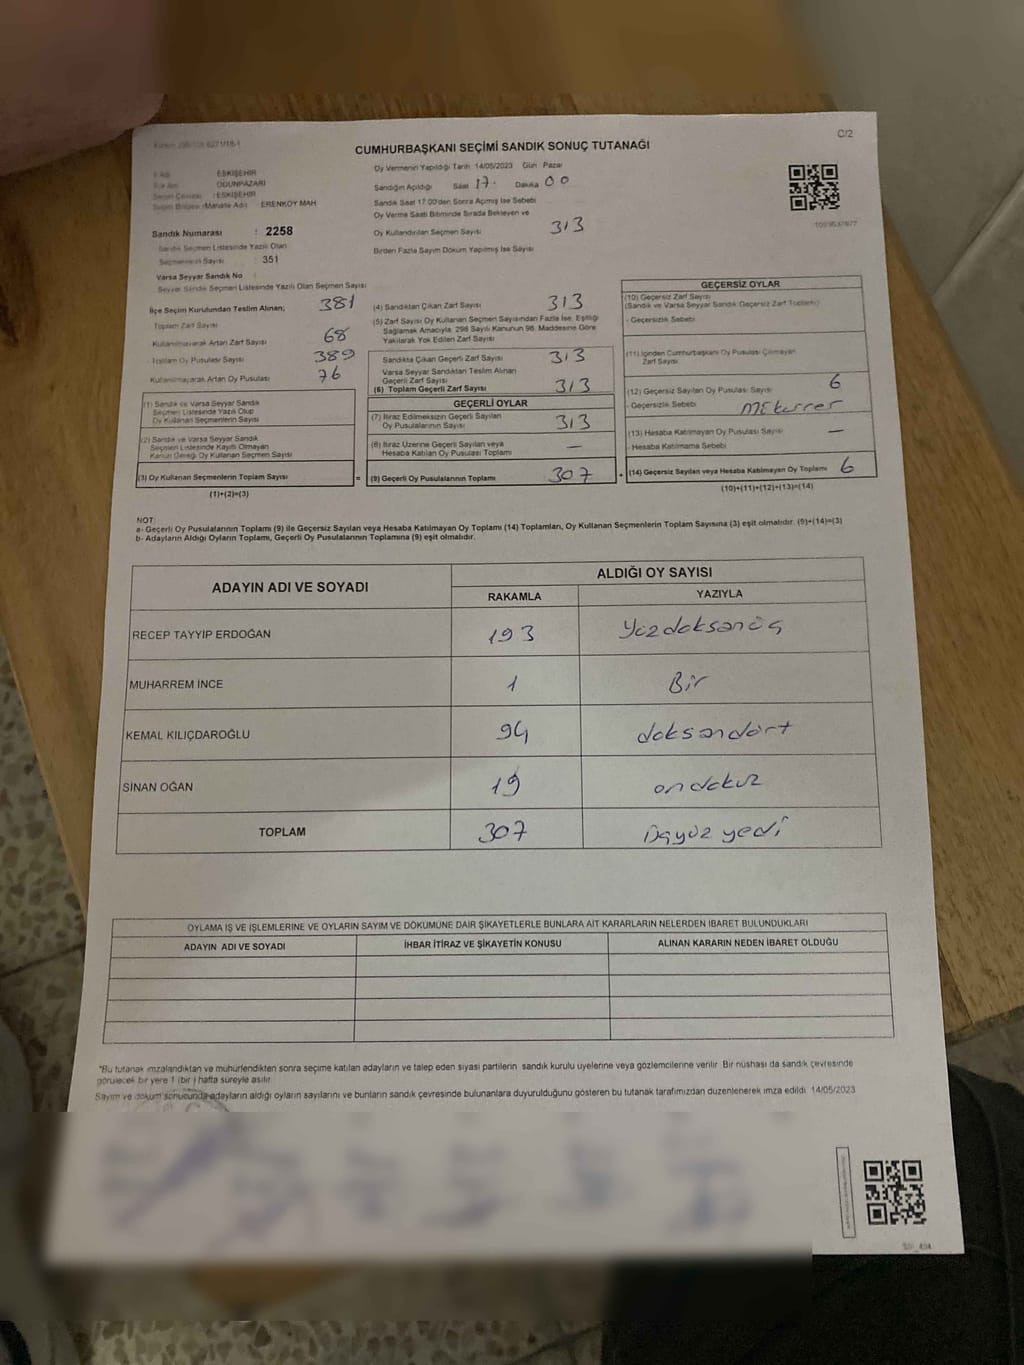 C/2
CUMHURBAŞKANI SEÇİMİ SANDIK SONUÇ TUTANAĞI
ESKİŞEHİR
ODUNPAZARI
ESKİŞEHİR
Mahalle Adı : ERENKÖY MAH
Sandık Numarası : 2258
Sandık Seçmen Listesinde Yazılı Olan
Seçmenlerin Sayısı : 351
Varsa Seyyar Sandık No :
Seyyar Sandık Seçmen Listesinde Yazılı Olan Seçmen Sayısı
Oy Vermenin Yapıldığı Tarih 14/05/2023 Gün Pazar
Sandığın Açıldığı Saat 17. Dakika 00
Sandık Saat 17:00'den Sonra Açılmış İse Sebebi
Oy Verme Saati Bitiminde Sırada Bekleyen ve
Oy Kullandırılan Seçmen Sayısı 313
Birden Fazla Sayım Döküm Yapılmış İse Sayısı
İlçe Seçim Kurulundan Teslim Alınan; 381
Toplam Zarf Sayısı
Kullanılmayarak Artan Zarf Sayısı 68
Toplam Oy Pusulası Sayısı 389
Kullanılmayarak Artan Oy Pusulası 76
(1) Sandık ve Varsa Seyyar Sandık
Seçmen Listesinde Yazılı Olup
Oy Kullanan Seçmenlerin Sayısı
(2) Sandık ve Varsa Seyyar Sandık
Seçmen Listesinde Kayıtlı Olmayan
Kanun Gereği Oy Kullanan Seçmen Sayısı
(3) Oy Kullanan Seçmenlerin Toplam Sayısı =
(1)+(2)=(3)
(4) Sandıktan Çıkan Zarf Sayısı 313
(5) Zarf Sayısı Oy Kullanan Seçmen Sayısından Fazla İse, Eşitliği
Sağlamak Amacıyla, 298 Sayılı Kanunun 98. Maddesine Göre
Yakılarak Yok Edilen Zarf Sayısı
Sandıkta Çıkan Geçerli Zarf Sayısı 313
Varsa Seyyar Sandıktan Teslim Alınan
Geçerli Zarf Sayısı
(6) Toplam Geçerli Zarf Sayısı 313
GEÇERLİ OYLAR
(7) İtiraz Edilmeksizin Geçerli Sayılan
Oy Pusulalarının Sayısı 313
(8) İtiraz Üzerine Geçerli Sayılan veya
Hesaba Katılan Oy Pusulası Toplamı —
(9) Geçerli Oy Pusulalarının Toplamı 307 +
GEÇERSİZ OYLAR
(10) Geçersiz Zarf Sayısı
(Sandık ve Varsa Seyyar Sandık Geçersiz Zarf Toplamı)
- Geçersizlik Sebebi
(11) İçinden Cumhurbaşkanı Oy Pusulası Çıkmayan
Zarf Sayısı
(12) Geçersiz Sayılan Oy Pusulası Sayısı 6
- Geçersizlik Sebebi mükerrer
(13) Hesaba Katılmayan Oy Pusulası Sayısı —
- Hesaba Katılmama Sebebi
(14) Geçersiz Sayılan veya Hesaba Katılmayan Oy Toplamı 6
(10)+(11)+(12)+(13)=(14)
NOT:
a- Geçerli Oy Pusulalarının Toplamı (9) ile Geçersiz Sayılan veya Hesaba Katılmayan Oy Toplamı (14) Toplamları, Oy Kullanan Seçmenlerin Toplam Sayısına (3) eşit olmalıdır. (9)+(14)=(3)
b- Adayların Aldığı Oyların Toplamı, Geçerli Oy Pusulalarının Toplamına (9) eşit olmalıdır.
ADAYIN ADI VE SOYADI ALDIĞI OY SAYISI
RAKAMLA YAZIYLA
RECEP TAYYİP ERDOĞAN 193 Yüzdoksanüç
MUHARREM İNCE 1 Bir
KEMAL KILIÇDAROĞLU 94 doksandört
SİNAN OĞAN 19 ondokuz
TOPLAM 307 üçyüz yedi
OYLAMA İŞ VE İŞLEMLERİNE VE OYLARIN SAYIM VE DÖKÜMÜNE DAİR ŞİKAYETLERLE BUNLARA AİT KARARLARIN NELERDEN İBARET BULUNDUKLARI
ADAYIN ADI VE SOYADI İHBAR İTİRAZ VE ŞİKAYETİN KONUSU ALINAN KARARIN NEDEN İBARET OLDUĞU
*Bu tutanak imzalandıktan ve mühürlendikten sonra seçime katılan adayların ve talep eden siyasi partilerin sandık kurulu üyelerine veya gözlemcilerine verilir. Bir nüshası da sandık çevresinde
görülecek bir yere 1 (bir) hafta süreyle asılır.
Sayım ve döküm sonucunda adayların aldığı oyların sayılarını ve bunların sandık çevresinde bulunanlara duyurulduğunu gösteren bu tutanak tarafımızdan düzenlenerek imza edildi. 14/05/2023